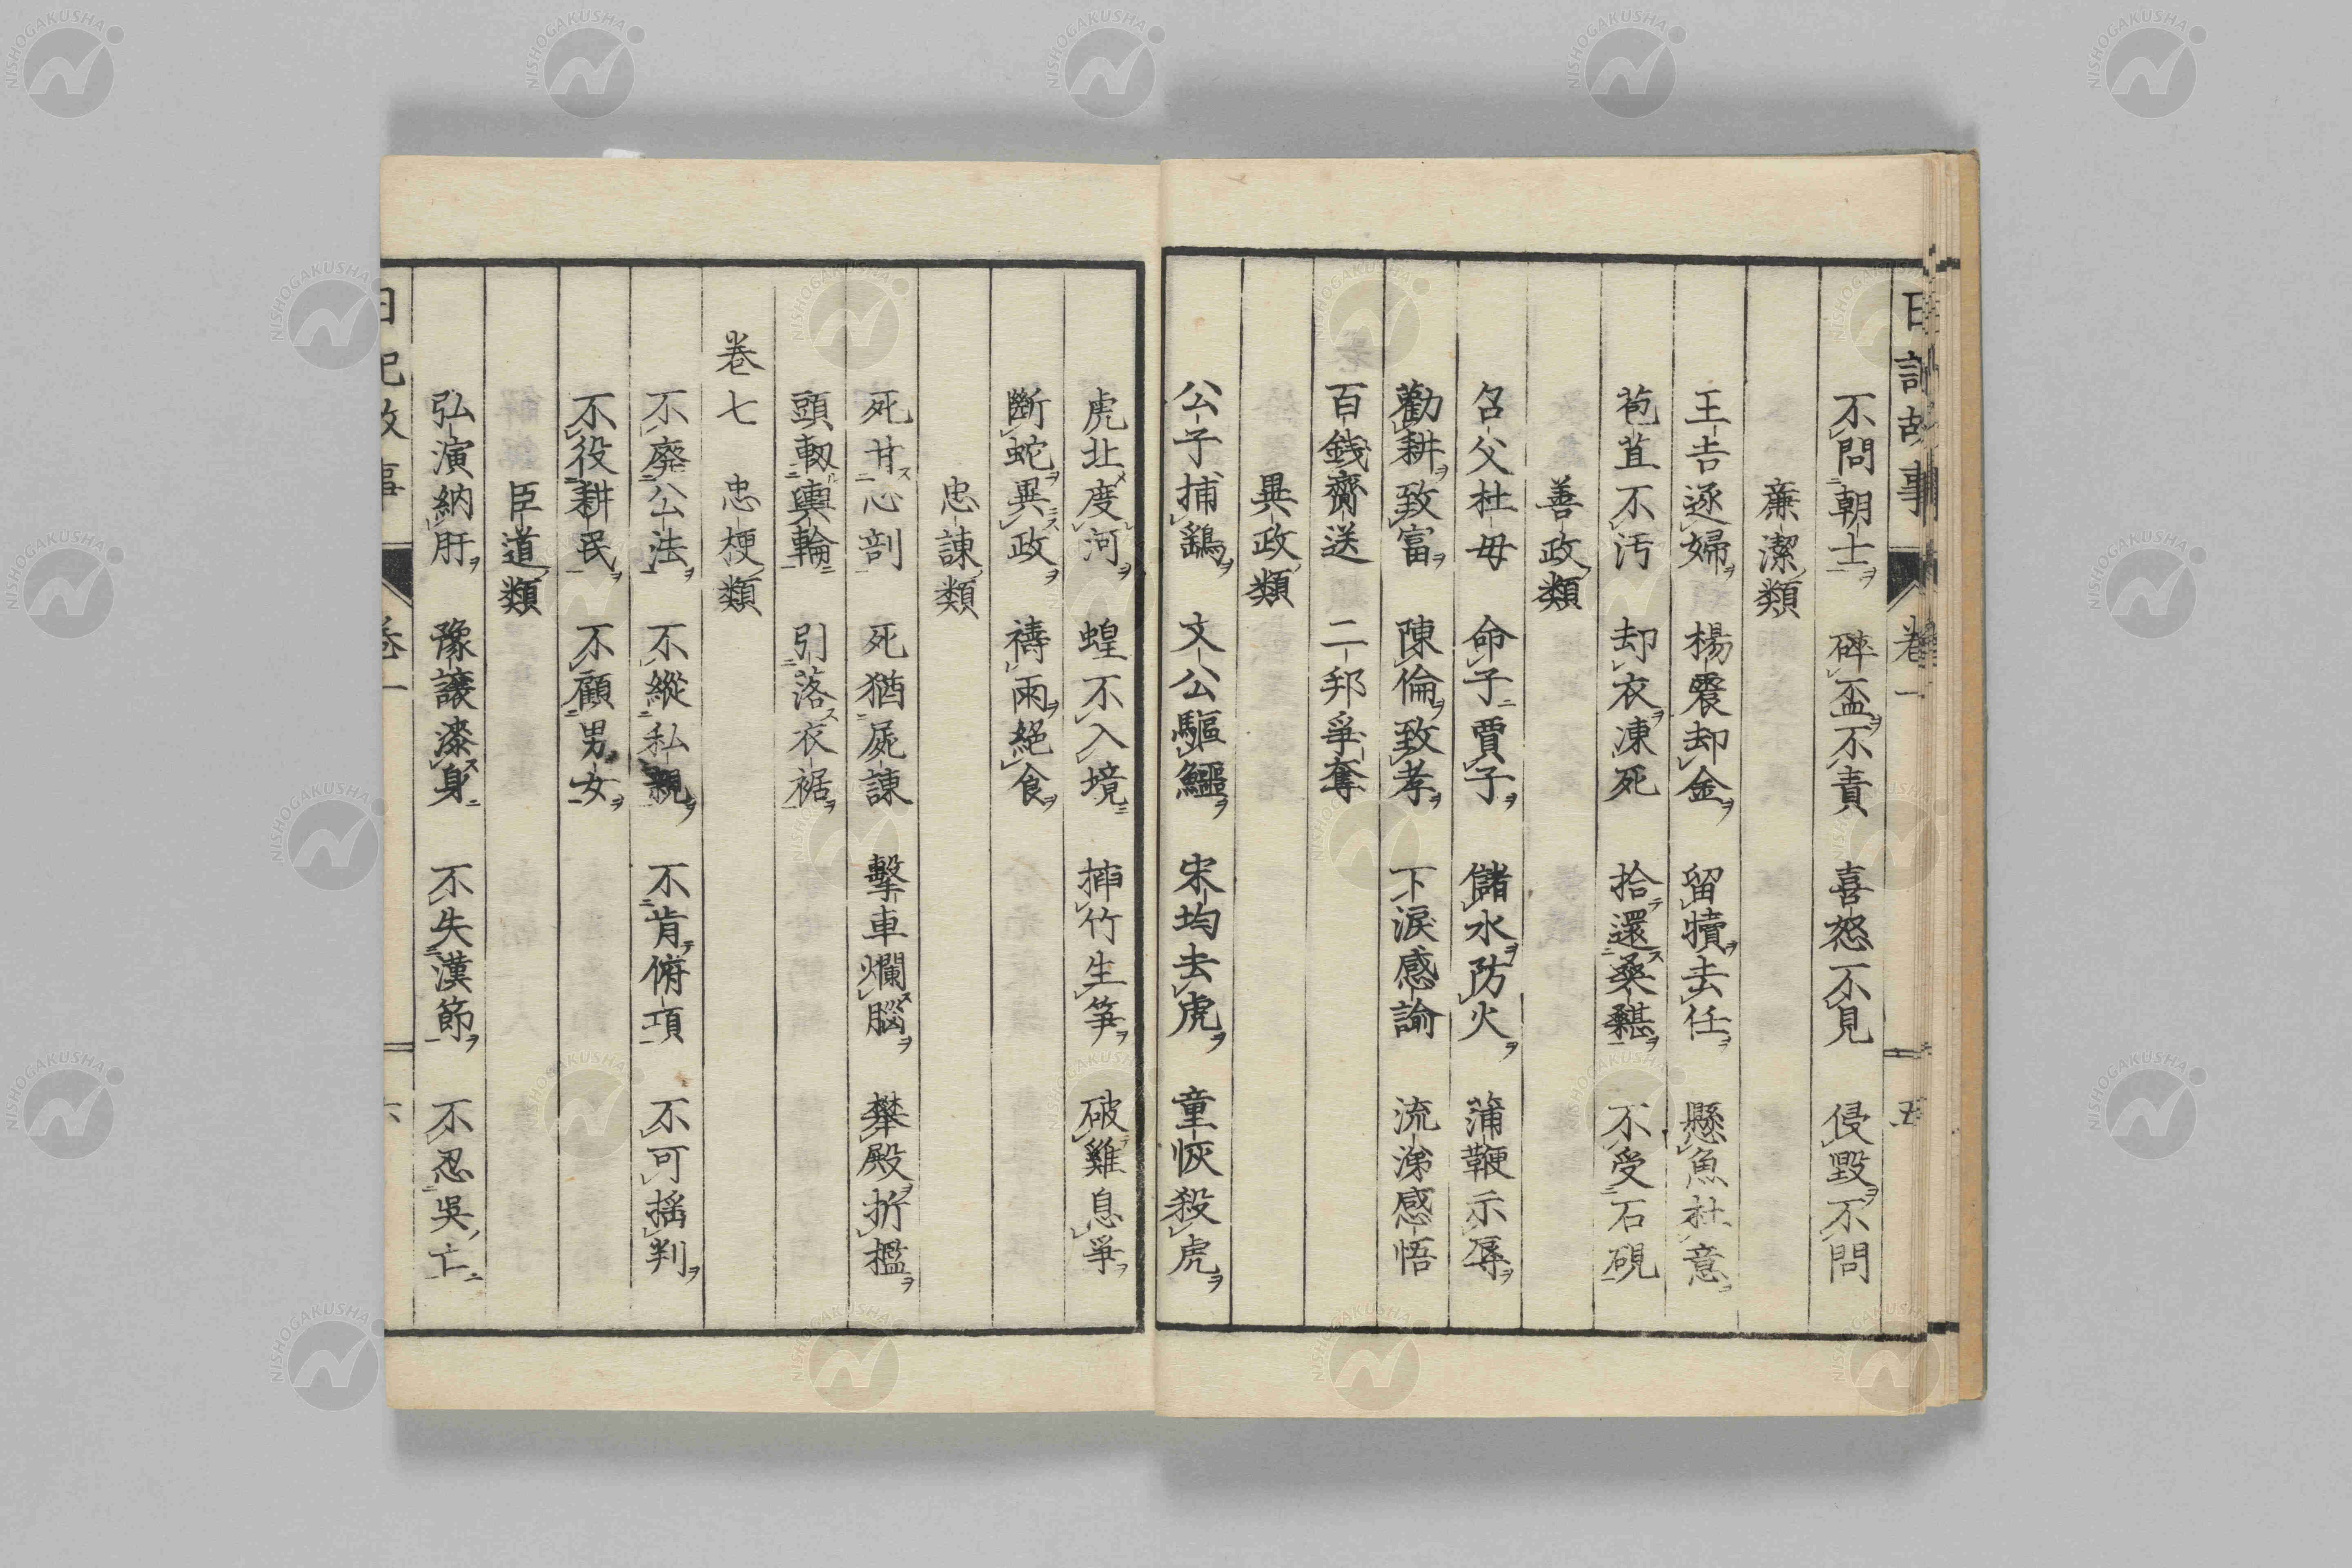 日記故事 卷一 五
不問朝士 碎盃不責 喜怒不見 侵毀不問
廉潔類
王吉逐婦 楊震却金 留犢去任 懸魚杜意
苞苴不汚 却衣凍死 拾還桑椹 不受石硯
善政類
召父杜母 命子賈子 儲水防火 蒲鞭示辱
勸耕致富 陳倫致孝 下淚感諭 流涕感悟
百錢齎送 二邦爭奪
異政類
公子捕鷂 文公驅鱷 宋均去虎 童恢殺虎
虎北度河 蝗不入境 揷竹生筍 破雞息爭
斷蛇異政 禱雨絕食
忠諫類
死甘心剖 死猶屍諫 擊車爛腦 攀殿折檻
頭軔輿輪 引落衣裾
卷七 忠梗類
不廢公法 不縱私親 不肯俯項 不可搖判
不役耕民 不顧男女
臣道類
弘演納肝 豫讓漆身 不失漢節 不忍吳亡
日記故事 卷一 六
NISHOGAKUSHA